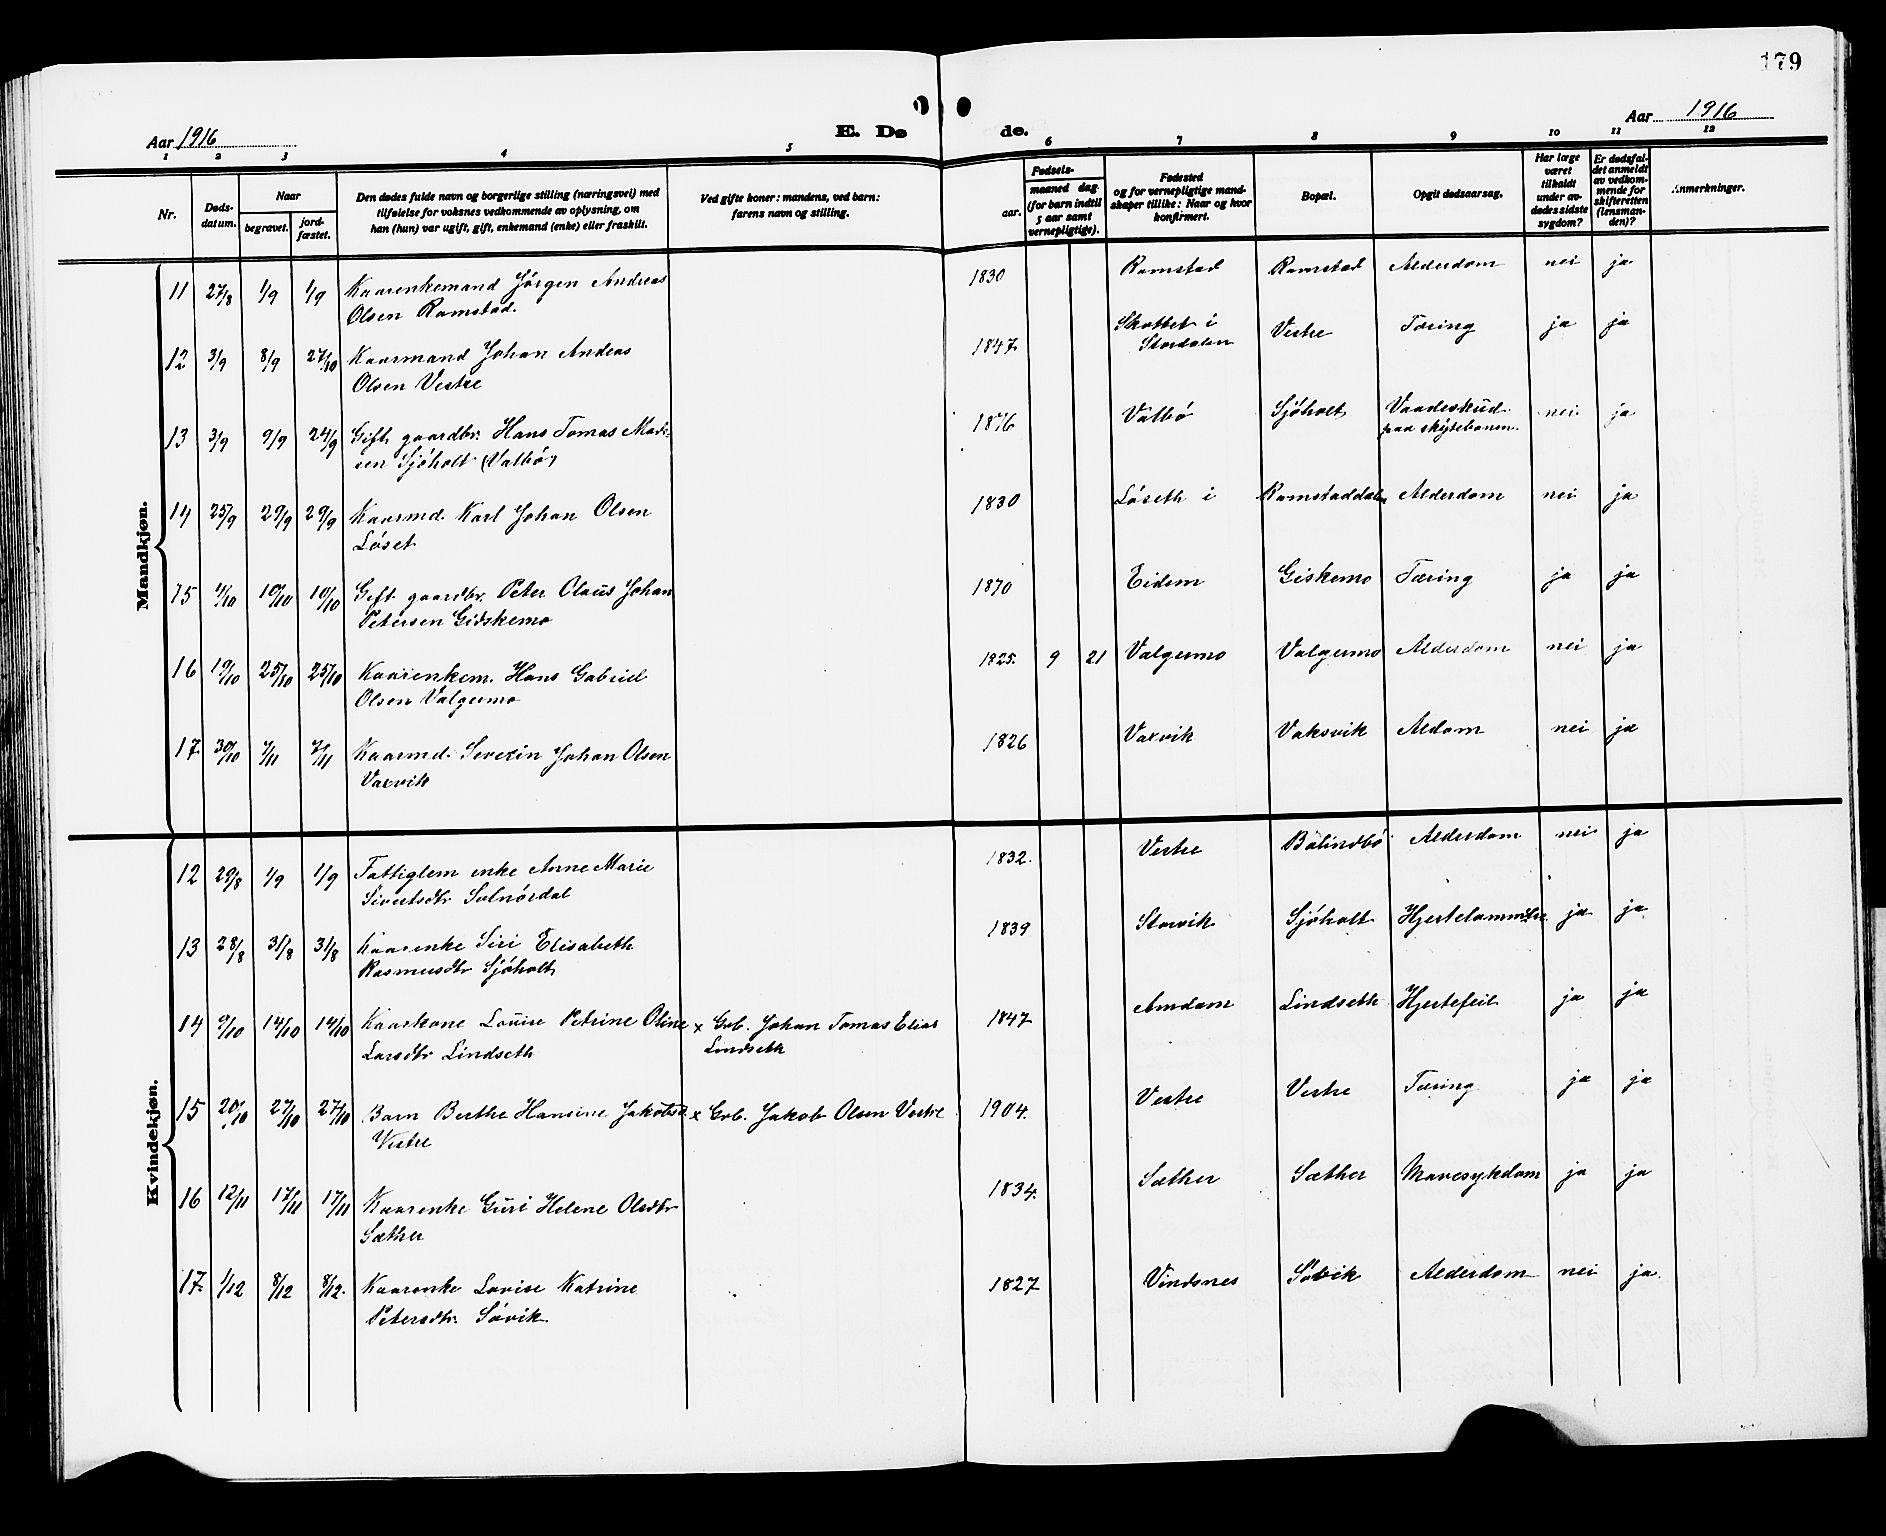 179
Aar 1916
E. Dø
de.
Aar 1916
1 2 3 4 5 6 7 8 9 10 11 12
Nr.
Døds-
datum.
Naar
begravet.
jord-
fæstet.
Den dødes fulde navn og borgerlige stilling (næringsvei) med
tilføielse for voksnes vedkommende av oplysning, om
han (hun) var ugift, gift, enkemand (enke) eller fraskilt.
Ved gifte koner: mandens, ved barn:
farens navn og stilling.
Fødsels-
aar.
maaned dag
(for barn indtil
5 aar samt
vernepligtige).
Fødested
og for vernepligtige mand-
skaper tillike: Naar og hvor
konfirmert.
Bopæl.
Opgit dødsaarsag.
Har læge
været
tilkaldt
under av-
dødes sidste
sygdom?
Er dødsfal-
det anmeldt
av vedkom-
mende for
skifteretten
(lensman-
den)?
Anmerkninger.
Mandkjøn.
11 27/8 1/9 1/9 Kaarenkemand Jørgen Andreas 1830 Ramstad Ramstad Alderdom nei ja
Olsen Ramstad.
12 3/9 8/9 27/10 Kaarmand Johan Andeas 1847 Skottet i Vestre Tæring ja ja
Olsen Vestre Stordalen
13 3/9 9/9 24/9 Gift gaardbr. Hans Tomas Mad- 1876 Valbø Sjøholt Vaadeskud nei ja
sen Sjøholt (Valbø) paa skytebanen.
14 25/9 29/9 29/9 Kaarmd. Karl Johan Olsen 1830 Løseth i Ramstaddalen Alderdom nei ja
Løset
15 4/10 10/10 10/10 Gift gaardbr. Peter Claus Johan 1870 Eidem Giskemo Tæring ja ja
Petersen Gidskemo
16 19/10 25/10 25/10 Kaarenkem. Hans Gabriel 1825. 9 21 Valgermo Valgermo Alderdom nei ja
Olsen Valgermo
17 30/10 7/11 7/11 Kaarmd. Severin Johan Olsen 1826 Vaxvik Vaksvik Aldom nei ja
Vaxvik
Kvindekjøn.
12 29/8 1/9 1/9 Fattiglem enke Anne Marie 1832. Vestre Bølindbø Alderdom nei ja
Sivertsdtr Solnørdal
13 28/8 31/8 31/8 Kaarenke Siri Elisabeth 1839 Storvik Sjøholt Hjertelammelse ja ja
Rasmusdtr Sjøholt
14 9/10 14/10 14/10 Kaarkone Louise Petrine Oline x Grb. Johan Tomas Elias 1847 Amdam Lindseth Hjertefeil ja ja
Larsdtr Lindseth Lindseth
15 20/10 27/10 27/10 Barn Berthe Hansine Jakobsd x Grb. Jakob Olsen Vestre 1904. Vestre Vestre Tæring ja ja
Vestre
16 12/11 17/11 17/11 Kaarenke Guri Helene Olsdtr 1834. Sæther Sæther Mavesykdom ja ja
Sæther
17. 1/12 8/12 8/12. Kaarenke Lovise Katrine 1827 Vindsnes Søvik Alderdom nei ja.
Petersdtr. Søvik